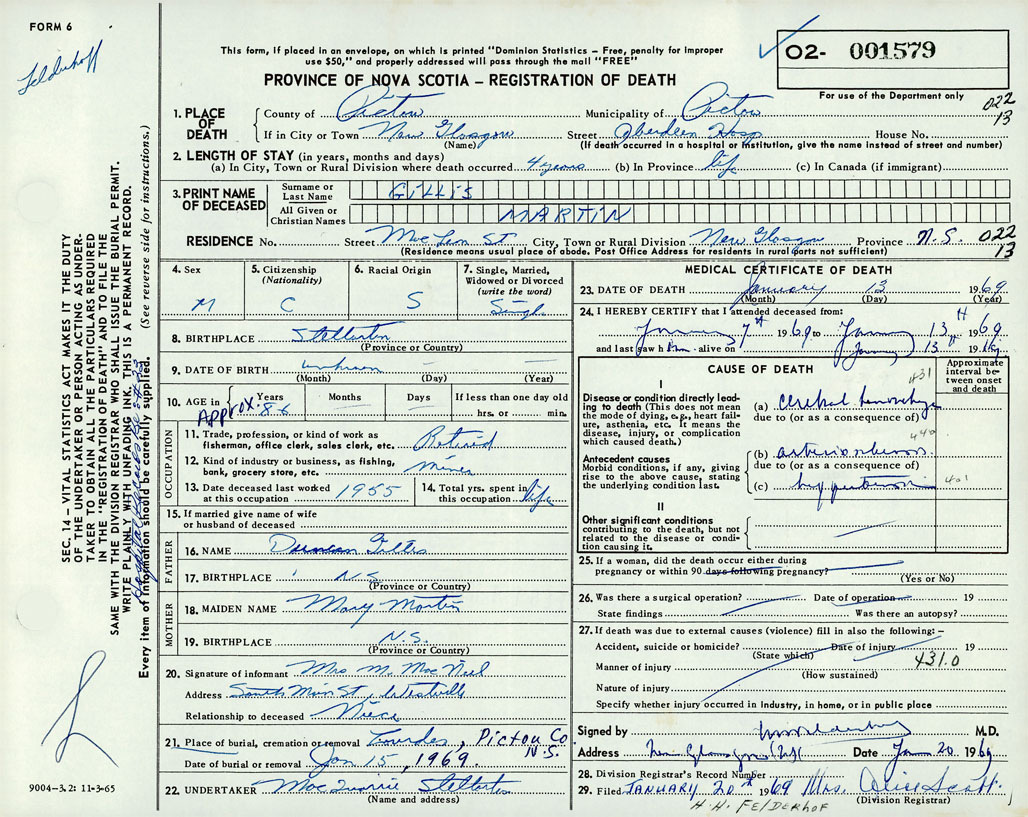 FORM 6
This form, if placed in an envelope, on which is printed "Dominion Statistics – Free, penalty for improper
use $50," and properly addressed will pass through the mail "FREE"
O2- 001579
PROVINCE OF NOVA SCOTIA – REGISTRATION OF DEATH
For use of the Department only
SEC. 14 – VITAL STATISTICS ACT MAKES IT THE DUTY
OF THE UNDERTAKER OR PERSON ACTING AS UNDER-
TAKER TO OBTAIN ALL THE PARTICULARS REQUIRED
IN THE "REGISTRATION OF DEATH" AND TO FILE THE
SAME WITH THE DIVISION REGISTRAR WHO SHALL ISSUE THE BURIAL PERMIT.
WRITE PLAINLY WITH UNFADING INK. THIS IS A PERMANENT RECORD.
Every item of information should be carefully supplied. (See reverse side for instructions.)
1. PLACE OF DEATH
County of Pictou Municipality of Pictou 022
If in City or Town New Glasgow Street Aberdeen Hosp House No. 13
(Name) (If death occurred in a hospital or institution, give the name instead of street and number)
2. LENGTH OF STAY (in years, months and days)
(a) In City, Town or Rural Division where death occurred 4 years (b) In Province life (c) In Canada (if immigrant)
3. PRINT NAME OF DECEASED
Surname or Last Name GILLIS
All Given or Christian Names MARTIN
RESIDENCE No. Street MacLean St City, Town or Rural Division New Glasgow Province N.S. 022
(Residence means usual place of abode. Post Office Address for residents in rural parts not sufficient) 13
4. Sex M
5. Citizenship (Nationality) C
6. Racial Origin S
7. Single, Married, Widowed or Divorced (write the word) Single
8. BIRTHPLACE Stellarton
(Province or Country)
9. DATE OF BIRTH unknown
(Month) (Day) (Year)
10. AGE in Approx. Years 86 Months Days If less than one day old
hrs. or min.
OCCUPATION
11. Trade, profession, or kind of work as
fisherman, office clerk, sales clerk, etc. Retired
12. Kind of industry or business, as fishing,
bank, grocery store, etc. miner
13. Date deceased last worked at this occupation 1955
14. Total yrs. spent in this occupation life
15. If married give name of wife
or husband of deceased
FATHER
16. NAME Duncan Gillis
17. BIRTHPLACE N.S.
(Province or Country)
MOTHER
18. MAIDEN NAME Mary Martin
19. BIRTHPLACE N.S.
(Province or Country)
20. Signature of informant Mrs M. MacNeil
Address South Main St, Westville
Relationship to deceased Niece
21. Place of burial, cremation or removal Lourdes, Pictou Co N.S.
Date of burial or removal Jan 15, 1969.
22. UNDERTAKER Stellarton
(Name and address)
9004-3.2: 11-3-65
MEDICAL CERTIFICATE OF DEATH
23. DATE OF DEATH January 13 1969
(Month) (Day) (Year)
24. I HEREBY CERTIFY that I attended deceased from:
January 7th 1969 to January 13th 1969
and last saw him alive on January 13th 1969
CAUSE OF DEATH
Approximate interval between onset and death
I
Disease or condition directly lead-
ing to death (This does not mean
the mode of dying, e.g., heart fail-
ure, asthenia, etc. It means the
disease, injury, or complication
which caused death.)
(a) cerebral hemorrhage 431
due to (or as a consequence of)
Antecedent causes
Morbid conditions, if any, giving
rise to the above cause, stating
the underlying condition last.
(b) arteriosclerosis 440
due to (or as a consequence of)
(c) hypertension 401
II
Other significant conditions
contributing to the death, but not
related to the disease or condi-
tion causing it.
25. If a woman, did the death occur either during
pregnancy or within 90 days following pregnancy?
(Yes or No)
26. Was there a surgical operation? Date of operation 19
State findings Was there an autopsy?
27. If death was due to external causes (violence) fill in also the following: –
Accident, suicide or homicide? Date of injury 19
(State which) 431.0
Manner of injury
(How sustained)
Nature of injury
Specify whether injury occurred in industry, in home, or in public place
Signed by M.D.
Address New Glasgow (NS) Date Jan 20 1969
28. Division Registrar's Record Number
29. Filed JANUARY 20th 1969 Mrs. Alice Scott
(Division Registrar)
H.H. FELDERHOF